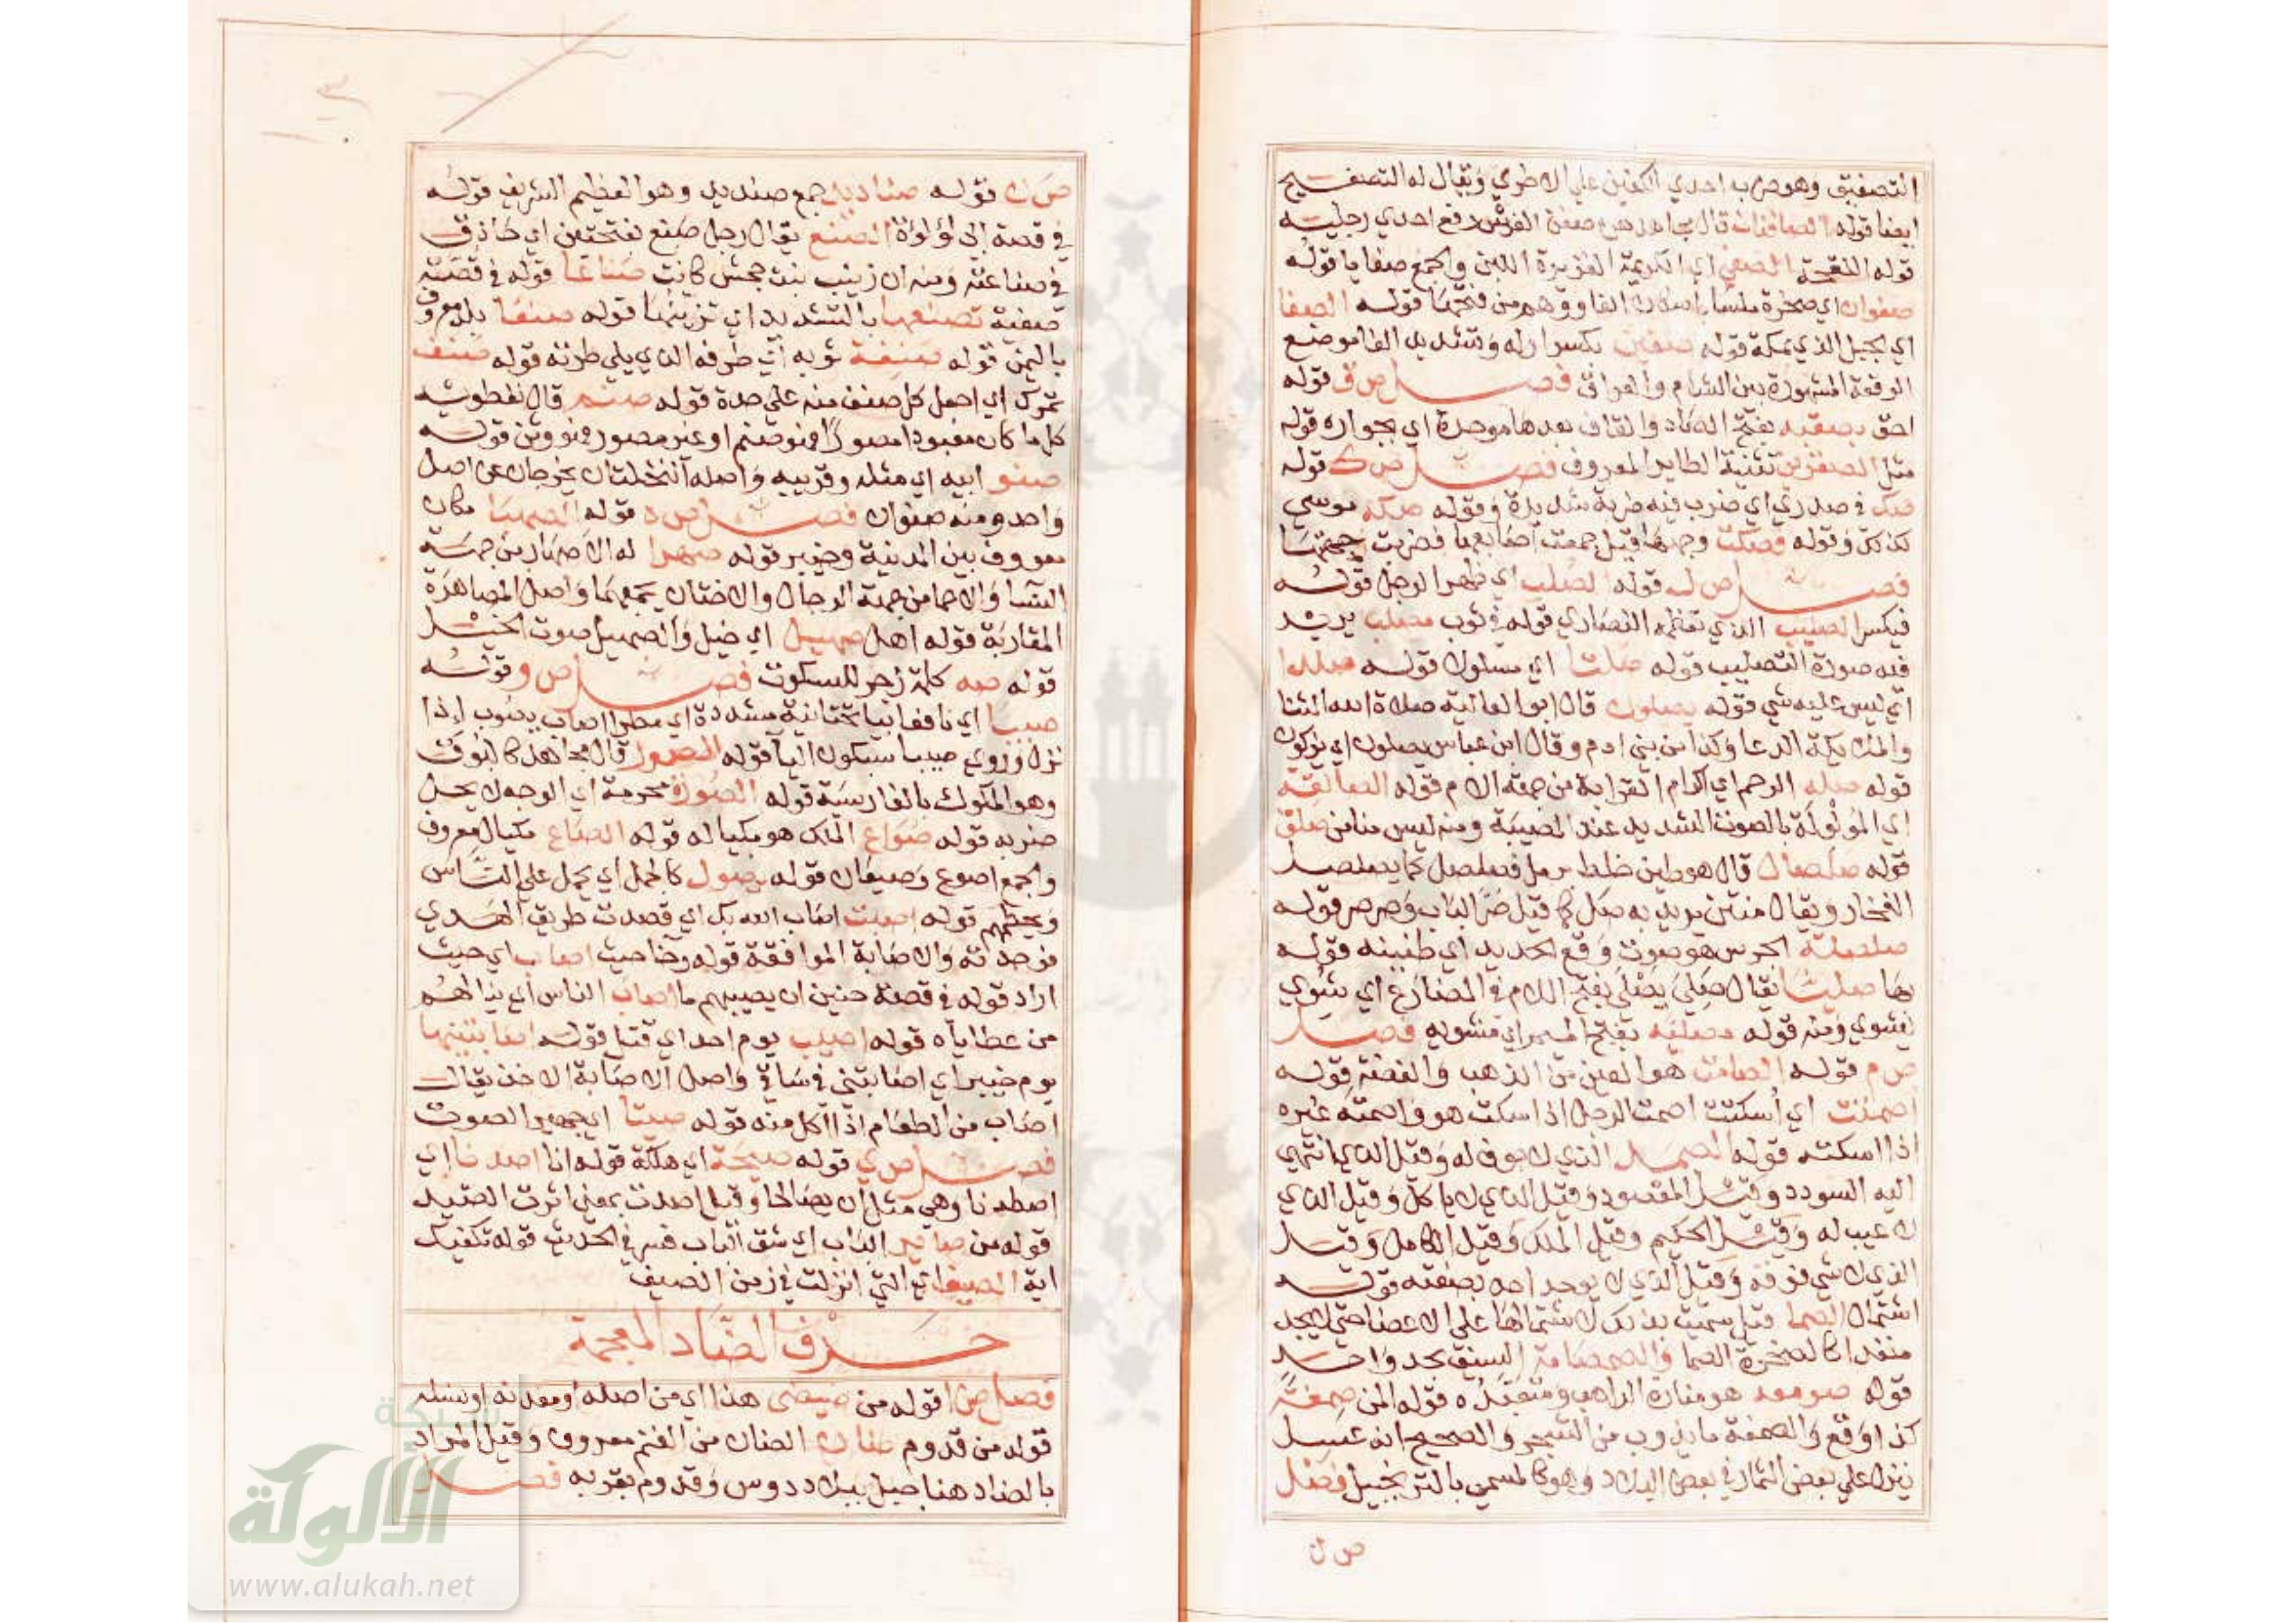 التصفيق وهو ضرب احدي الكفين علي الاخري ويقال له التصفيح
ايضا قوله الصافنات قال مجاهد صفن الفرس رفع احدي رجليه
قوله اللقحة الصفي اي الكريمة الغزيرة اللبن والجمع صفايا قوله
صفوان اي صخرة ملسا باسكان الفا ووهم من فتحها قوله الصفا
اي الجبل الذي بمكة قوله صفين بكسر اوله وتشديد الفا موضع
الوقعة المشهورة بين الشام والعراق فصل ص ق قوله
احق بصقبه بفتح الصاد والقاف بعدها موحدة اي بجواره قوله
مثل الصقرين تثنية الطاير المعروف فصل ص ك قوله
صك في صدري اي ضرب فيه ضربة شديدة وقوله صكه موسي
كذلك وقوله فصكت وجهها قيل جمعت اصابعها فضربت جبهتها
فصل ص ل قوله الصلب اي ظهر الرجل قوله
فيكسر الصليب الذي تعظمه النصاري قوله في ثوب مصلب يريد
فيه صورة التصليب قوله صلتا اي مسلول قوله صلدا
اي ليس عليه شي قوله يصلون قال ابو العالية صلاة الله الثنا
والملايكة الدعا وكذا من بني ادم وقال ابن عباس يصلون اي يبركون
قوله صلة الرحم اي اكرام القرابة من جهة الام قوله الصالقة
اي المولولة بالصوت الشديد عند المصيبة ومنه ليس منا من صلق
قوله صلصال قال هو طين خلط برمل فصلصل كما يصلصل
الفخار ويقال منتن يريد به صل كما قيل صر الباب وصرصر قوله
صلصلة الجرس هو صوت وقع الحديد اي طنينه قوله
بها صليتا يقال صلي يصلي بفتح اللام في المضارع اي شوي
يشوي ومنه قوله مصلية بفتح الميم اي مشويه فصل
ص م قوله الصامت هو العين من الذهب والفضة قوله
اصمتت اي اسكتت اصمت الرجل اذا سكت هو واصمته غيره
اذا اسكته قوله الصمد الذي لا جوف له وقيل الذي انتهي
اليه السودد وقيل المقصود وقيل الذي لا ياكل وقيل الذي
لا عيب له وقيل الحكيم وقيل الملك وقيل الكامل وقيل
الذي لا شي فوقه وقيل الذي لا يوجد احد بصفته قوله
اشتمال الصما قيل سميت بذلك لاشتمالها علي الاعضا حتي لا يجد
منفذا كالصخرة الصما والصمصامة السيف بحد واحد
قوله صومعة هو منارة الراهب ومتعبده قوله المن صمغة
كذا وقع والصمغة ما يذوب من الشجر والصحيح انه عسل
ينزل علي بعض الثمار في بعض البلاد وهو كالمسمي بالترنجبيل فصل
ص ن
ص ن قوله صناديد جمع صنديد وهو العظيم الشريف قوله
في قصة ابي لؤلؤة الصنع يقال رجل صنع بفتحتين اي حاذق
في صناعته ومنه ان زينب بنت جحش كانت صناعا قوله في قصة
صفية تصنعها بالتشديد اي تزينها قوله صنعا بلد معروف
باليمن قوله صنفة ثوبه اي طرفه الذي يلي طرته قوله صنف
تمرك اي اجعل كل صنف منه علي حدة قوله صنم قال نفطويه
كل ما كان معبودا مصورا فهو صنم او غير مصور فهو وثن قوله
صنو ابيه اي مثله وقريبه واصله النخلتان يخرجان عن اصل
واحد ومنه صنوان فصل ص ه قوله الصهبا مكان
معروف بين المدينة وخيبر قوله صهرا له الاصهار من جهة
النسا والاحما من جهة الرجال والاختان يجمعهما واصل المصاهرة
المقاربة قوله اهل صهيل اي خيل والصهيل صوت الخيل
قوله صه كلمة زجر للسكوت فصل ص و قوله
صيبا اي نافعا بيا تحتانية مشددة اي مطرا صاب يصوب اذا
نزل وروي صيبا بسكون اليا قوله الصور قال مجاهد كالبوق
وهو المكوك بالفارسية قوله الصورة محرمة اي الوجه لا يحل
ضربه قوله صواع الملك هو مكياله قوله الصاع مكيال معروف
والجمع اصوع وصيعان قوله يصول كالجمل اي يحمل علي الناس
ويحطمهم قوله اصبت اصاب الله بك اي قصدت طريق الهدي
فوجدته والاصابة الموافقة قوله رخا حيث اصاب اي حيث
اراد قوله في قصة حنين ان يصيبهم ما اصاب الناس اي ينالهم
من عطاياه قوله اصيب يوم احد اي قتل قوله اصابتنيها
يوم خيبر اي اصابتني في ساقي واصل الاصابة الاخذ يقال
اصاب من الطعام اذا اكل منه قوله صيتا اي جهير الصوت
فصل ص ي قوله صيحة اي هلكة قوله انا اصدنا اي
اصطدنا وهي مثل ان يصالحا وقيل اصدت بمعني اثرت الصيد
قوله من صاير الباب اي شق الباب فسر في الحديث قوله تكفيك
اية الصيف اي التي انزلت في زمن الصيف
حرف الضاد المعجمة
فصل ض ا قوله من ضيضي هذا اي من اصله او معدنه او نسله
قوله من قدوم ضان الضان من الغنم معروف وقيل المراد
بالضاد هنا جبل ببلاد دوس وقدوم بقربه فصل
شبكة
الألوكة
www.alukah.net